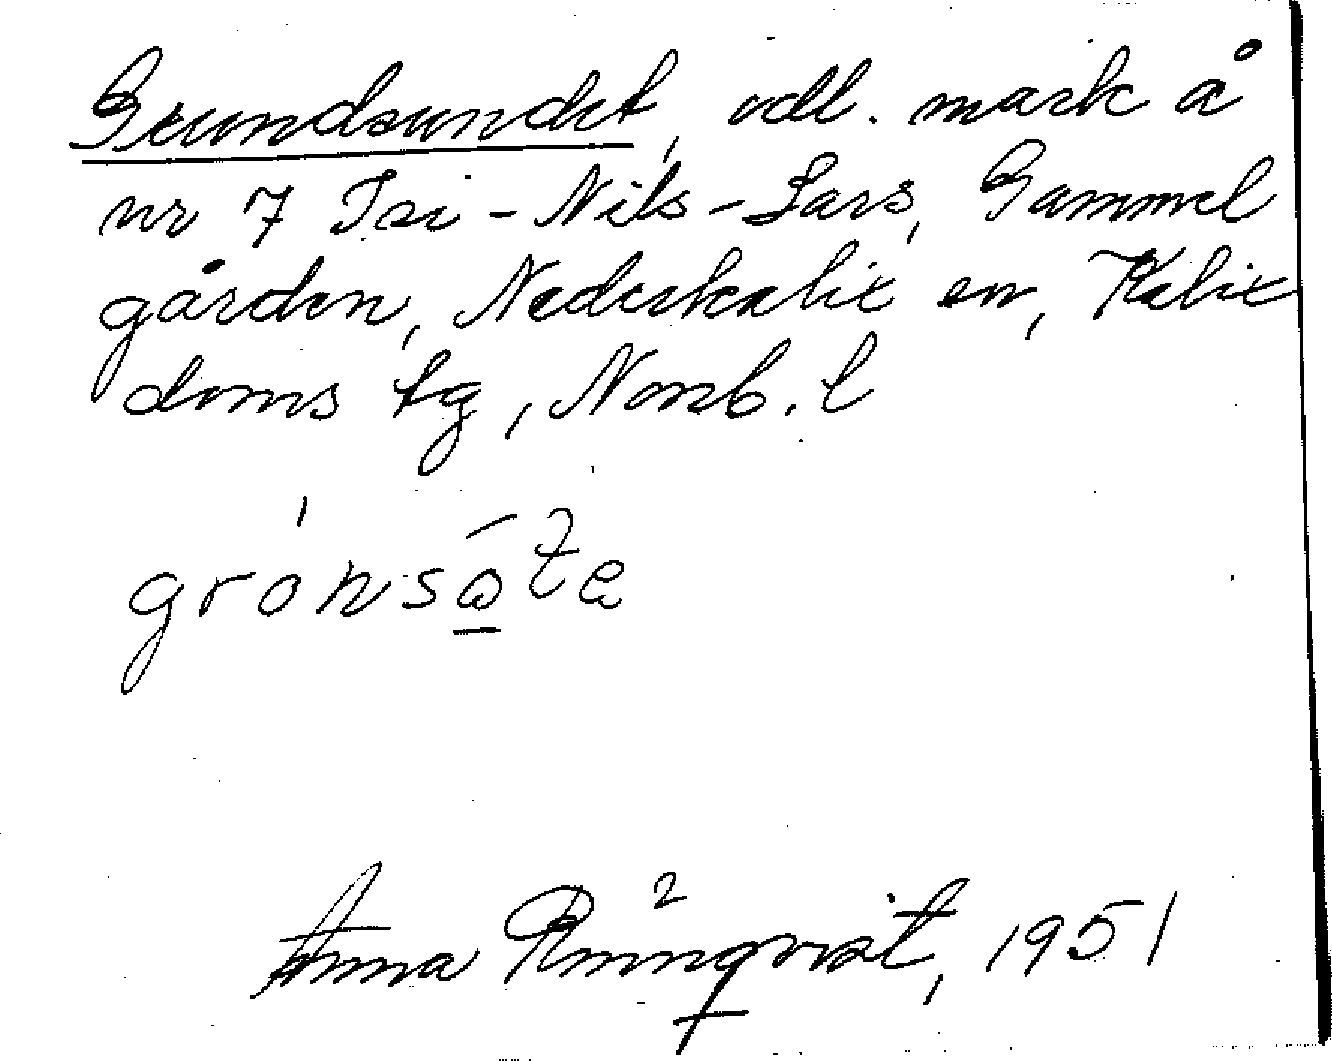 Grundsundet, odl. mark å
nr 7 Isi-Nils-Lars, Gammel
gården, Nederkalix sn, Kalix
doms tg, Norrb. l
grónsóte
Anna Rönnqvist, 1951